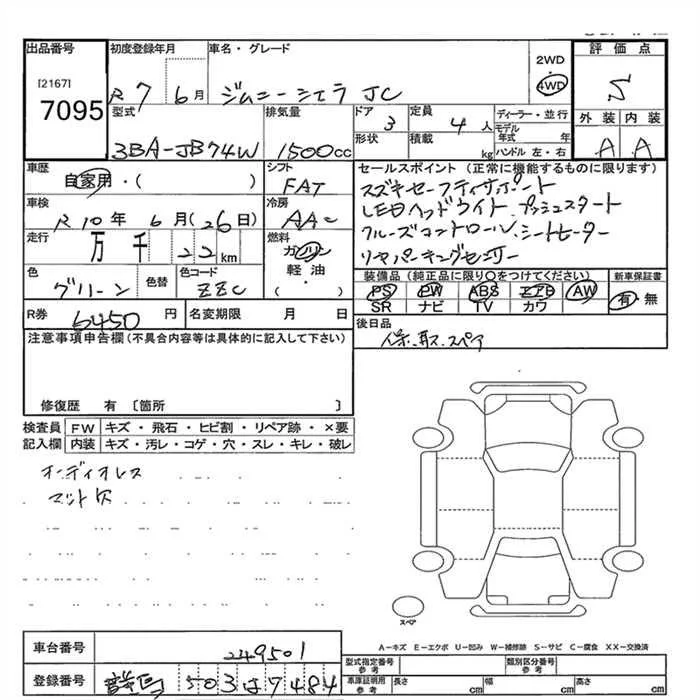 出品番号 初度登録年月 車名・グレード 2WD 評価点
[2167] R7年6月 ジムニーシエラ JC 4WD S
7095 型式 排気量 ドア 定員 ディーラー・並行 外装 内装
3BA-JB74W 1500cc 3 4人 モデル年式 年 A A
形状 積載 kg ハンドル 左・右
車歴 自家用・( ) シフト FAT セールスポイント (正常に機能するものに限ります)
スズキセーフティサポート
車検 R10年6月(26日) 冷房 AAC LEDヘッドライト、プッシュスタート
走行 万 千 22km 燃料 ガソリン 軽油・( ) クルーズコントロール、シートヒーター
リヤパーキングセンサー
色 グリーン 色替 色コード ZZC 装備品 (純正品に限り○をつけてください) 新車保証書
PS PW ABS エアB AW 有・無
SR ナビ TV カワ
R券 6450円 名変期限 月 日 後日品
注意事項申告欄(不具合内容等は具体的に記入して下さい) 保、取、スペア
修復歴 有 〔箇所 〕
検査員 FW キズ・飛石・ヒビ割・リペア跡・×要
記入欄 内装 キズ・汚レ・コゲ・穴・スレ・キレ・破レ
オーディオレス
マット欠
スペア
A-キズ E-エクボ U-凹み W-補修跡 S-サビ C-腐食 XX-交換済
車台番号 249501
型式指定番号 参考 類別区分番号 参考
登録番号 503は7484
車庫証明用 参考 長さ cm 幅 cm 高さ cm